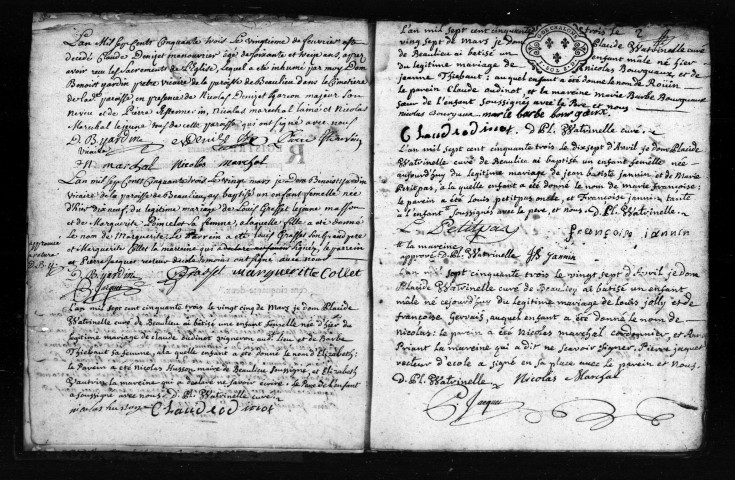 L'an Mil sept Cents Cinquante trois le vingtieme de fevrier est
decedé Claude Denijet manouvrier agé de soixante et
avoir reçu les sacrements de l'Eglise, lequel a été inhumé par moy Dom
Benoist Jardin pretre vicaire de la paroisse de Beaulieu dans le Cimetiere
de lad. paroisse en presence de Nicolas Denijet garçon majeur son
neveu et de Pierre Nicolas marechal laine et Nicolas
Marechal le jeune tous de cette paroisse qui ont signé avec nous
D. B. Jardin
vicaire
N marchal Nicolas Marchal
L'an mil sept Cents Cinquante trois le vingt mars je dom Benoist Jardin
vicaire de la paroisse de Beaulieu ay baptisé un enfant femelle née
d'hier dixneuf du legitime mariage de Louis Grosset le jeune masson
et de Marguerite sa femme, a laquelle fille a eté donné
le nom de Marguerite Le Parrein a eté Louis Grosset son grand pere
et Marguerite Collet la mareine qui a signez, le parrein
et Pierre Jacquet recteur decole temoins ont signé avec nous
approuvé
la rature
D. B. J.
D. B. Jardin Grosset margueritte Collet
P. Jacquet
L'an mil sept cent cinquante trois le vingt cinq de Mars je dom Placide
Watrinelle curé de Beaulieu ai bétisé une enfant femelle né d'hier du
legitime mariage de claude audinot vigneron aud. lieu et de Barbe
Thiebaut sa femme, a la quelle enfant a eté donné le nom d'Elizabeth;
le Parein a eté Nicolas Husson maire de Beaulieu soussigné, et Elizabeth
Vautrin la mareine qui a declaré ne savoir écrire. le Pere de l'enfant
a soussigné avec nous D. Pl. Watrinelle curé
nicolas husson Claud odinot
L'an mil sept cent cinquante trois le
ving sept de mars, je dom Placide Watrinelle curé
de Beaulieu ai bétisé un enfant mâle né hier
du legitime mariage de Nicolas Bourgaux, et de
jeanne Thiebaut: auquel enfant a été donné le nom de
le parein claude audinot et la mareine marie Barbe Bourgeaux
sœur de l'enfant soussignés avec le Pere et nous
nicolas bourgaux marie barbe bourgaux
Claud odinot D. Pl. Watrinelle curé
L'an mil sept cent cinquante trois le dixsept d'Avril je dom Placide
Watrinelle curé de Beaulieu ai baptisé un enfant femelle née
aujourd'huy du legitime mariage de jean batiste jannin et de Marie
Petitpas, a la quelle enfant a été donné le nom de marie francoise;
le parein a été louis petitpas oncle, et francoise Jannin tante
a l'enfant soussignés avec le pere et nous D. Pl. Watrinelle
L Petitpas françoise iannin
et la mareine
approuvé D. Pl. Watrinelle JB Jannin
L'an mil sept cinquante trois le vingt sept d'Avril je dom
Placide Watrinelle curé de Beaulieu ai bétisé un enfant
mâle né cejourd'huy du legitime mariage de louis jolly et de
francoise Gervais, auquel enfant a été donné le nom de
nicolas: le parein a été Nicolas marchal cordonnier, et
la mareine qui a dit ne scavoir signer, Pierre jaquet
recteur d'ecole a signé en sa place avec le parein et nous.
D. Pl. Watrinelle Nicolas Marchal
P. Jacquet